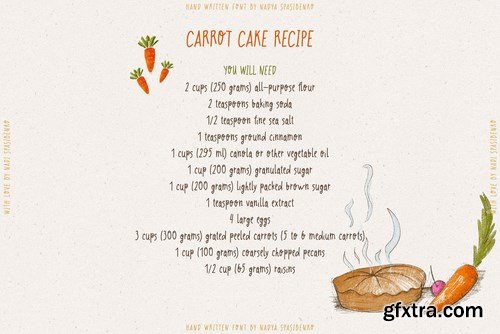 HAND WRITTEN FONT BY NADYA SPASIBENKO
CARROT CAKE RECIPE
YOU WILL NEED
2 cups (250 grams) all-purpose flour
2 teaspoons baking soda
1/2 teaspoon fine sea salt
1 teaspoons ground cinnamon
1 cups (295 ml) canola or other vegetable oil
1 cup (200 grams) granulated sugar
1 cup (200 grams) lightly packed brown sugar
1 teaspoon vanilla extract
4 large eggs
3 cups (300 grams) grated peeled carrots (5 to 6 medium carrots)
1 cup (100 grams) coarsely chopped pecans
1/2 cup (65 grams) raisins
WITH LOVE BY NADI SPASIBENKO
WITH LOVE BY NADI SPASIBENKO
gfxtra.com
HAND WRITTEN FONT BY NADYA SPASIBENKO